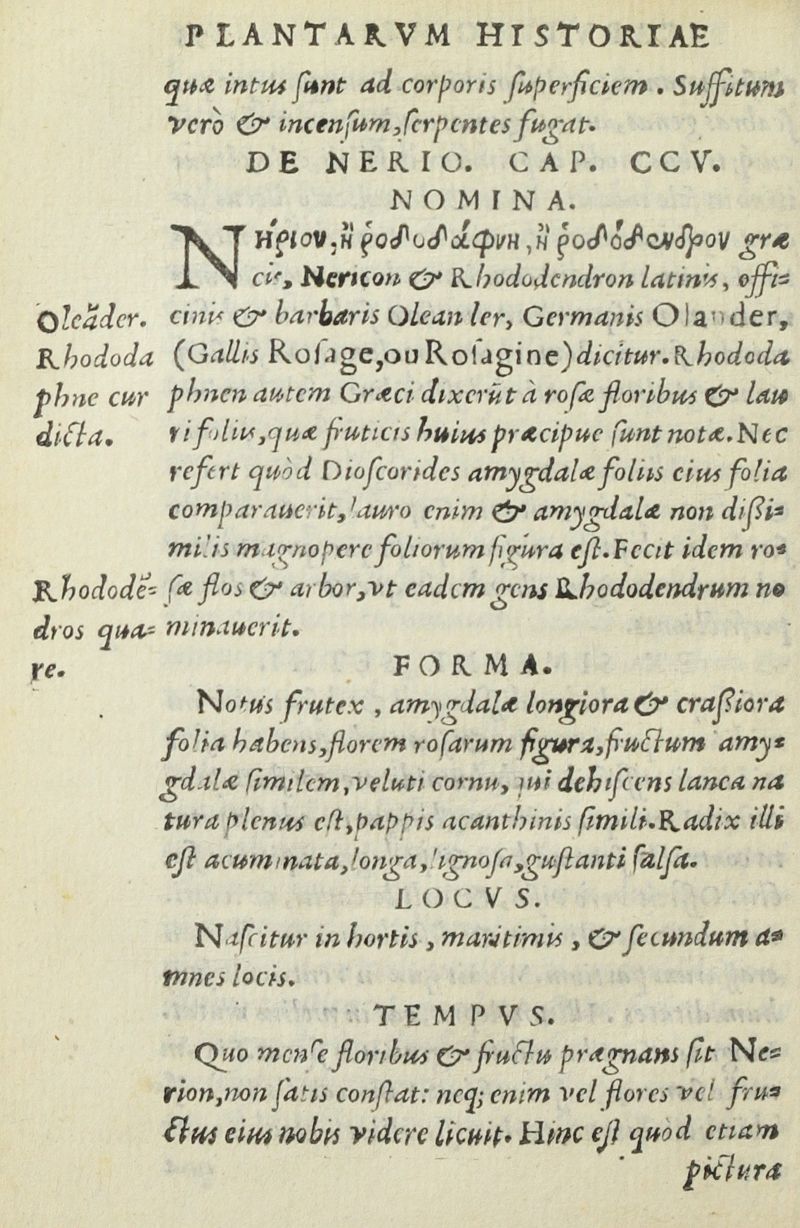 PLANTARVM HISTORIAE
quæ intus ſunt ad corporis ſuperficiem . Suffitum
verò & incenſum, ſerpentes fugat.
DE NERIO. CAP. CCV.
NOMINA.
Νήριον, ἢ ῥοδοδάφνη, ἢ ῥοδόδενδρον græ
cis, Nericon & Rhododendron latinis, offi=
Oleãder.
cinis & barbaris Oleander, Germanis Olander,
Rhododa
(Gallis Roſage, ou Roſagine) dicitur. Rhododa
phne cur
phnen autem Græci dixerũt à roſæ floribus & lau
dicta.
ri foliis, quæ fruticis huius præcipue ſunt notæ. Nec
refert quòd Dioſcorides amygdalæ foliis eius folia
comparauerit, lauro enim & amygdalæ non diſſi=
milis magnopere foliorum figura eſt. Fecit idem ro=
Rhododẽ=
ſæ flos & arbor, vt eadem gens Rhododendrum no
dros qua=
minauerit.
re.
FORMA.
Notus frutex , amygdalæ longiora & craſſiora
folia habens, florem roſarum figura, fructum amy=
gdalæ ſimilem, veluti cornu, qui dehiſcens lanea na
tura plenus eſt, pappis acanthinis ſimili. Radix illi
eſt acuminata, longa, lignoſa, guſtanti ſalſa.
LOCVS.
Naſcitur in hortis , maritimis , & ſecundum a=
mnes locis.
TEMPVS.
Quo menſe floribus & fructu prægnans ſit Ne=
rion, non ſatis conſtat: neq; enim vel flores vel fru=
ctus eius nobis videre licuit. Hinc eſt quòd etiam
pictura